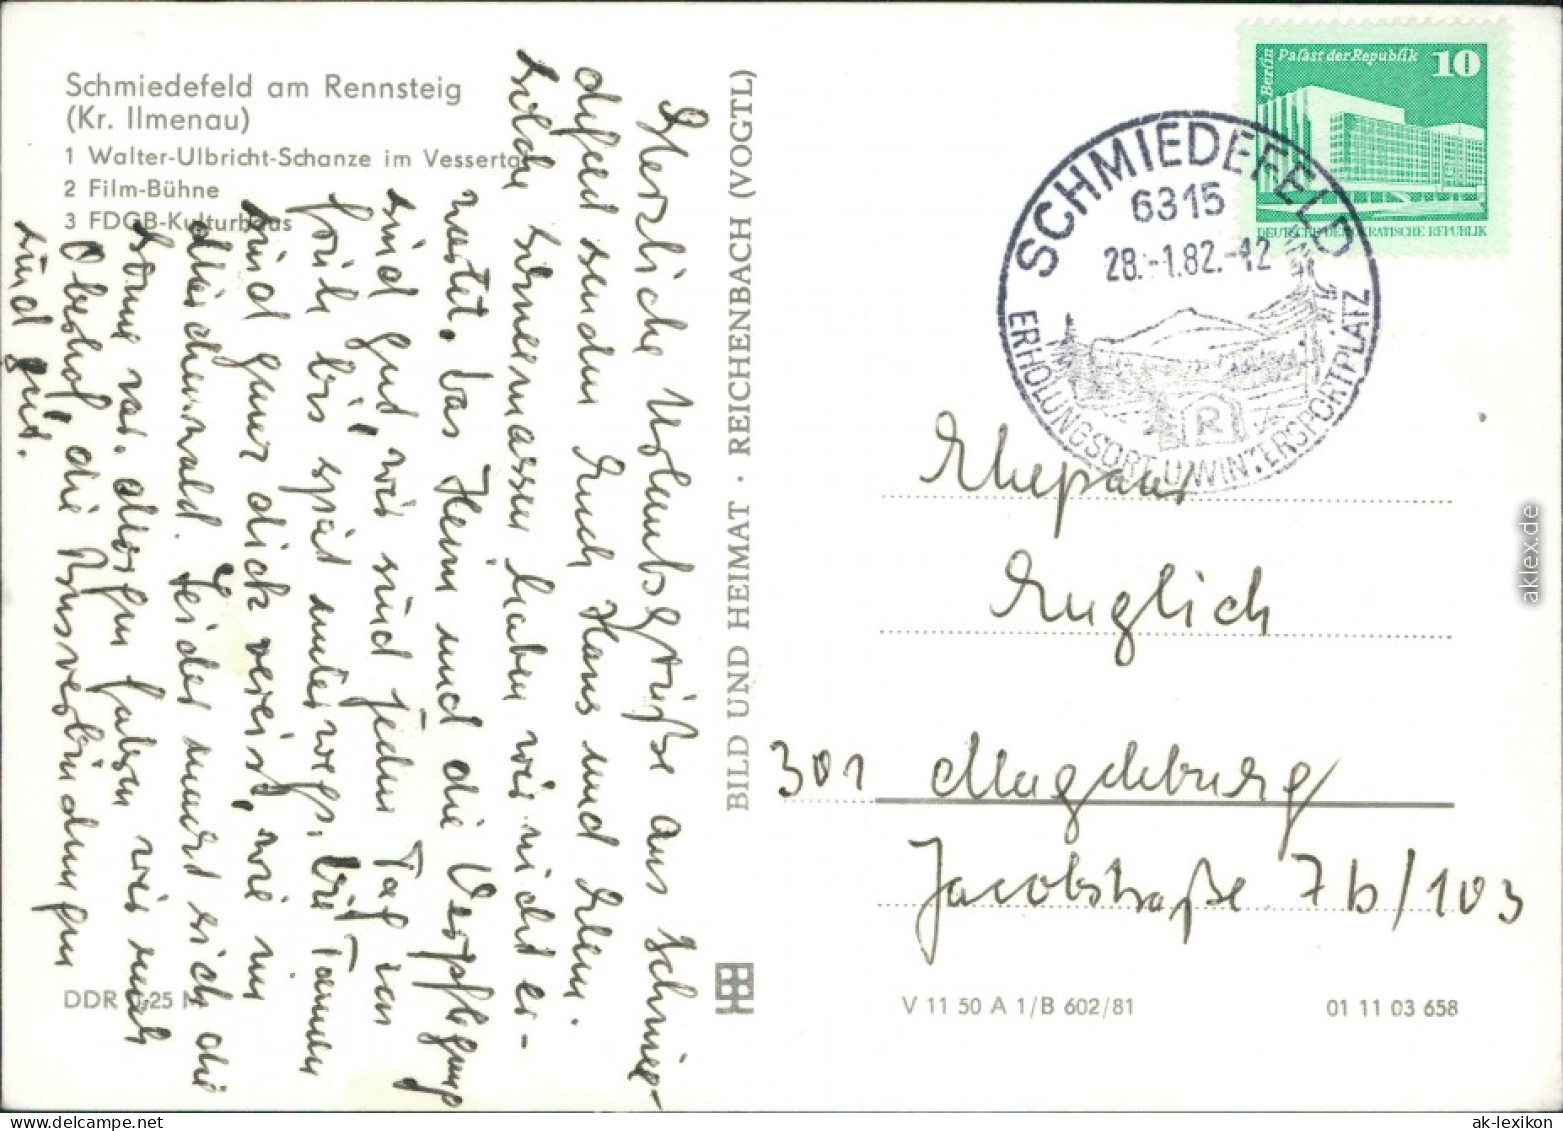 Schmiedefeld am Rennsteig
(Kr. Ilmenau)
1 Walter-Ulbricht-Schanze im Vessertal
2 Film-Bühne
3 FDGB-Kulturhaus
Herzliche Urlaubsgrüße aus Schmie-
defeld senden Euch Hans und Ellen.
Solche Schneemassen haben wir nicht er-
wartet. Das Heim und die Verpflegung
sind gut, wir sind jeden Tag von
früh bis spät unterwegs. Die Tannen
sind ganz dick vereist, wie im
Märchenwald. Leider macht sich die
Sonne rar. Morgen fahren wir nach
Oberhof, die Busverbindungen
sind gut.
DDR 0-25 M
BILD UND HEIMAT · REICHENBACH (VOGTL)
Berlin Palast der Republik 10
DEUTSCHE DEMOKRATISCHE REPUBLIK
SCHMIEDEFELD
6315
28.-1.82.-12
R
ERHOLUNGSORT U WINTERSPORTPLATZ
Ehepaar
Englich
301 Magdeburg
Jacobstraße 7b/103
V 11 50 A 1/B 602/81
01 11 03 658
aklex.de
ak-lexikon